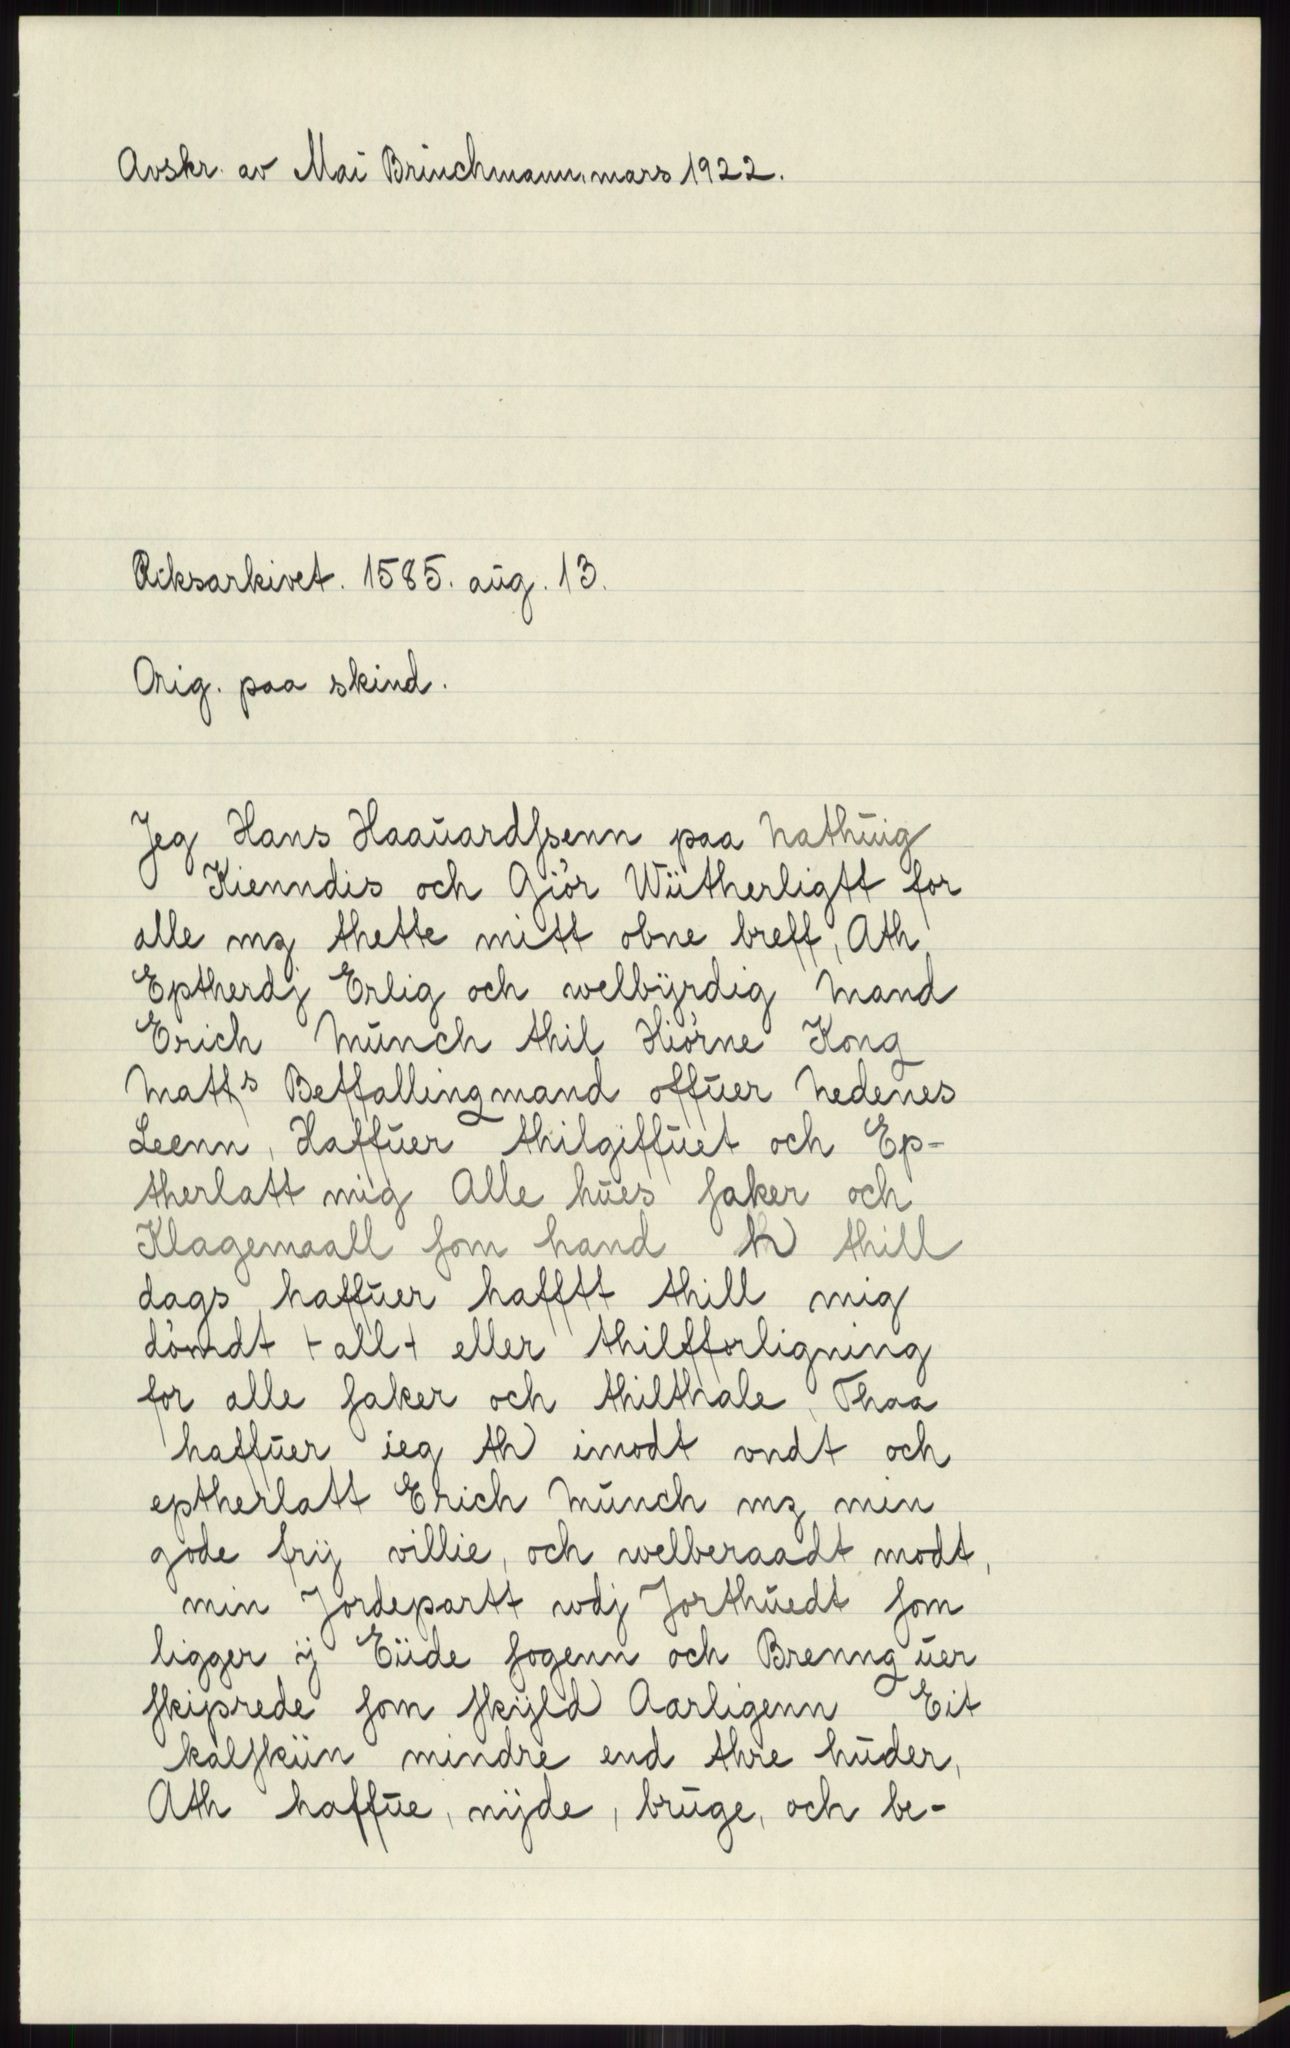 Avskr. av Mai Brinchmann, mars 1922.
Riksarkivet. 1585. aug. 13.
Orig. paa skind.
Jeg Hans Haauardssenn paa Nathuig
Kienndis och Giör Wütherligtt for
alle mz thette mitt obne breff, Ath
Eptherdj Erlig och welbÿrdig Mand
Erich Munch thil Hiörne Kong
Matts Beffallingmand offuer Nedenes
Leenn, Haffuer thilgiffuet och Ep-
therlatt mig Alle hues saker och
Klagemaall som hand th thill
dags haffuer hafftt thill mig
dömdt + all + eller thilfforligning
for alle saker och thilthale, Thaa
haffuer ieg th imodt vndt och
eptherlatt Erich Munch mz min
gode frÿ villie, och welberaadt modt,
min Jordepartt wdj Jorthuedt som
ligger ÿ Eüde sogenn och Brenng uer
skiprede som skÿld Aarligenn Eit
kalfskün mindre end thre huder,
Ath haffue, nÿde, bruge, och be-